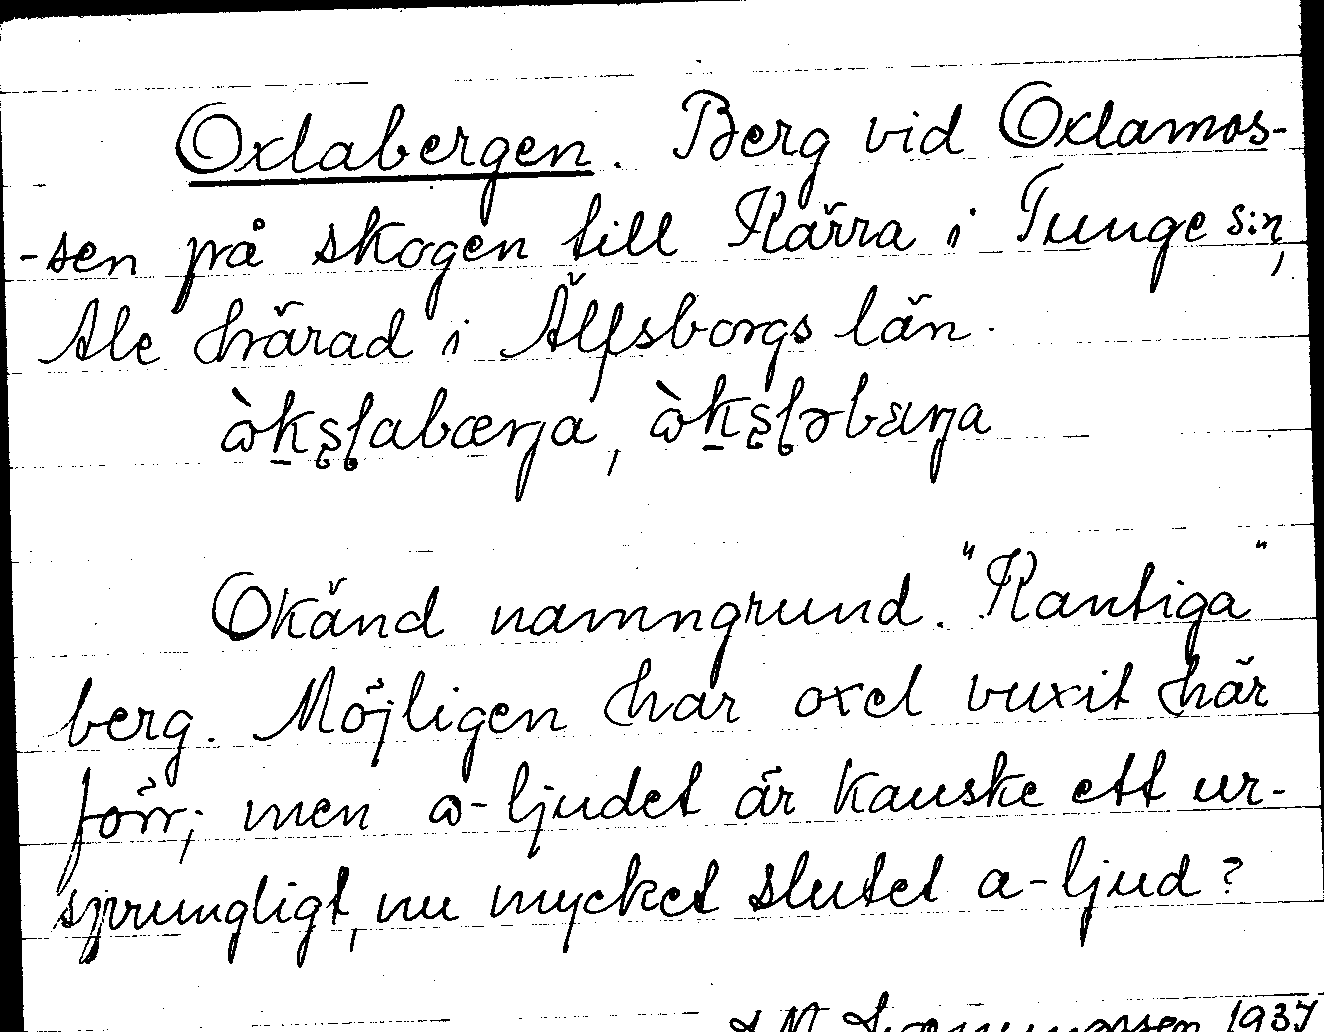 Oxlabergen. Berg vid Oxlamos-
-sen på skogen till Kärra i Tunge s:n,
Ale härad i Älfsborgs län.
Okänd namngrund. "Kantiga"
berg. Möjligen har oxel vuxit här
förr; men ω-ljudet är kanske ett ur-
sprungligt, nu mycket slutet a-ljud?
1937